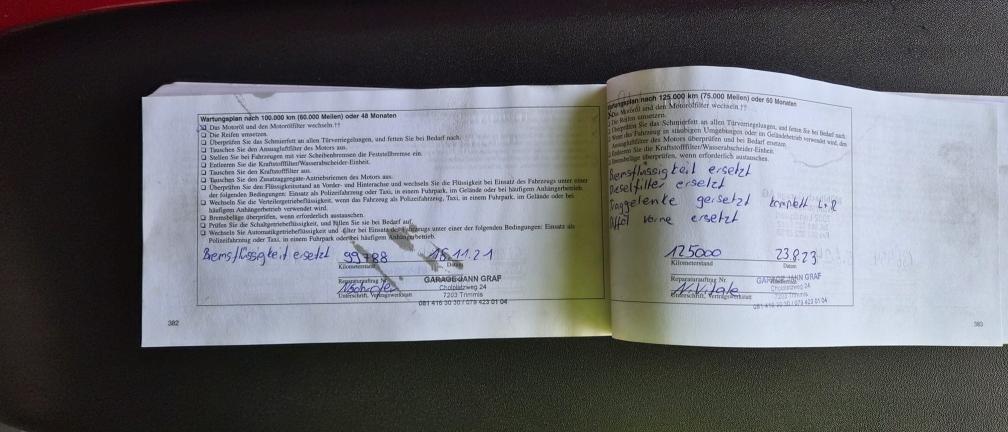 Wartungsplan nach 100.000 km (60.000 Meilen) oder 48 Monaten
Das Motoröl und den Motorölfilter wechseln.††
❏ Die Reifen umsetzen.
❏ Überprüfen Sie das Schmierfett an allen Türverriegelungen, und fetten Sie bei Bedarf nach.
❏ Tauschen Sie den Ansaugluftfilter des Motors aus.
❏ Stellen Sie bei Fahrzeugen mit vier Scheibenbremsen die Feststellbremse ein.
❏ Entleeren Sie die Kraftstofffilter/Wasserabscheider-Einheit.
❏ Tauschen Sie den Kraftstofffilter aus.
❏ Tauschen Sie den Zusatzaggregate-Antriebsriemen des Motors aus.
❏ Überprüfen Sie den Flüssigkeitsstand an Vorder- und Hinterachse und wechseln Sie die Flüssigkeit bei Einsatz des Fahrzeugs unter einer
der folgenden Bedingungen: Einsatz als Polizeifahrzeug oder Taxi, in einem Fuhrpark, im Gelände oder bei häufigem Anhängerbetrieb.
❏ Wechseln Sie die Verteilergetriebeflüssigkeit, wenn das Fahrzeug als Polizeifahrzeug, Taxi, in einem Fuhrpark, im Gelände oder bei
häufigem Anhängerbetrieb verwendet wird.
❏ Bremsbeläge überprüfen, wenn erforderlich austauschen.
❏ Prüfen Sie die Schaltgetriebeflüssigkeit, und füllen Sie sie bei Bedarf auf.
❏ Wechseln Sie Automatikgetriebeflüssigkeit und -filter bei Einsatz des Fahrzeugs unter einer der folgenden Bedingungen: Einsatz als
Polizeifahrzeug oder Taxi, in einem Fuhrpark oder bei häufigem Anhängerbetrieb.
Bremsflüssigkeit ersetzt 99788 16.11.21
Kilometerstand Datum
Reparaturauftrag Nr. GARAGE JANN GRAF
Cholplatzweg 24
Unterschrift, Vertragswerkstatt 7203 Trimmis
081 416 30 30 / 079 423 01 04
382
Wartungsplan nach 125.000 km (75.000 Meilen) oder 60 Monaten
Das Motoröl und den Motorölfilter wechseln.††
Die Reifen umsetzen.
Überprüfen Sie das Schmierfett an allen Türverriegelungen, und fetten Sie bei Bedarf nach.
Wenn das Fahrzeug in staubigen Umgebungen oder im Geländebetrieb verwendet wird, den
Ansaugluftfilter des Motors überprüfen und bei Bedarf ersetzen.
Entleeren Sie die Kraftstofffilter/Wasserabscheider-Einheit.
Bremsbeläge überprüfen, wenn erforderlich austauschen.
Bremsflüssigkeit ersetzt
Deselfilter ersetzt
Traggelenke gersetzt komplett L+R
vorne ersetzt
125000 23.8.23
Kilometerstand Datum
Reparaturauftrag Nr. GARAGE JANN GRAF
Cholplatzweg 24
N. Vitale 7203 Trimmis
Unterschrift, Vertragswerkstatt 081 416 30 30 / 079 423 01 04
383